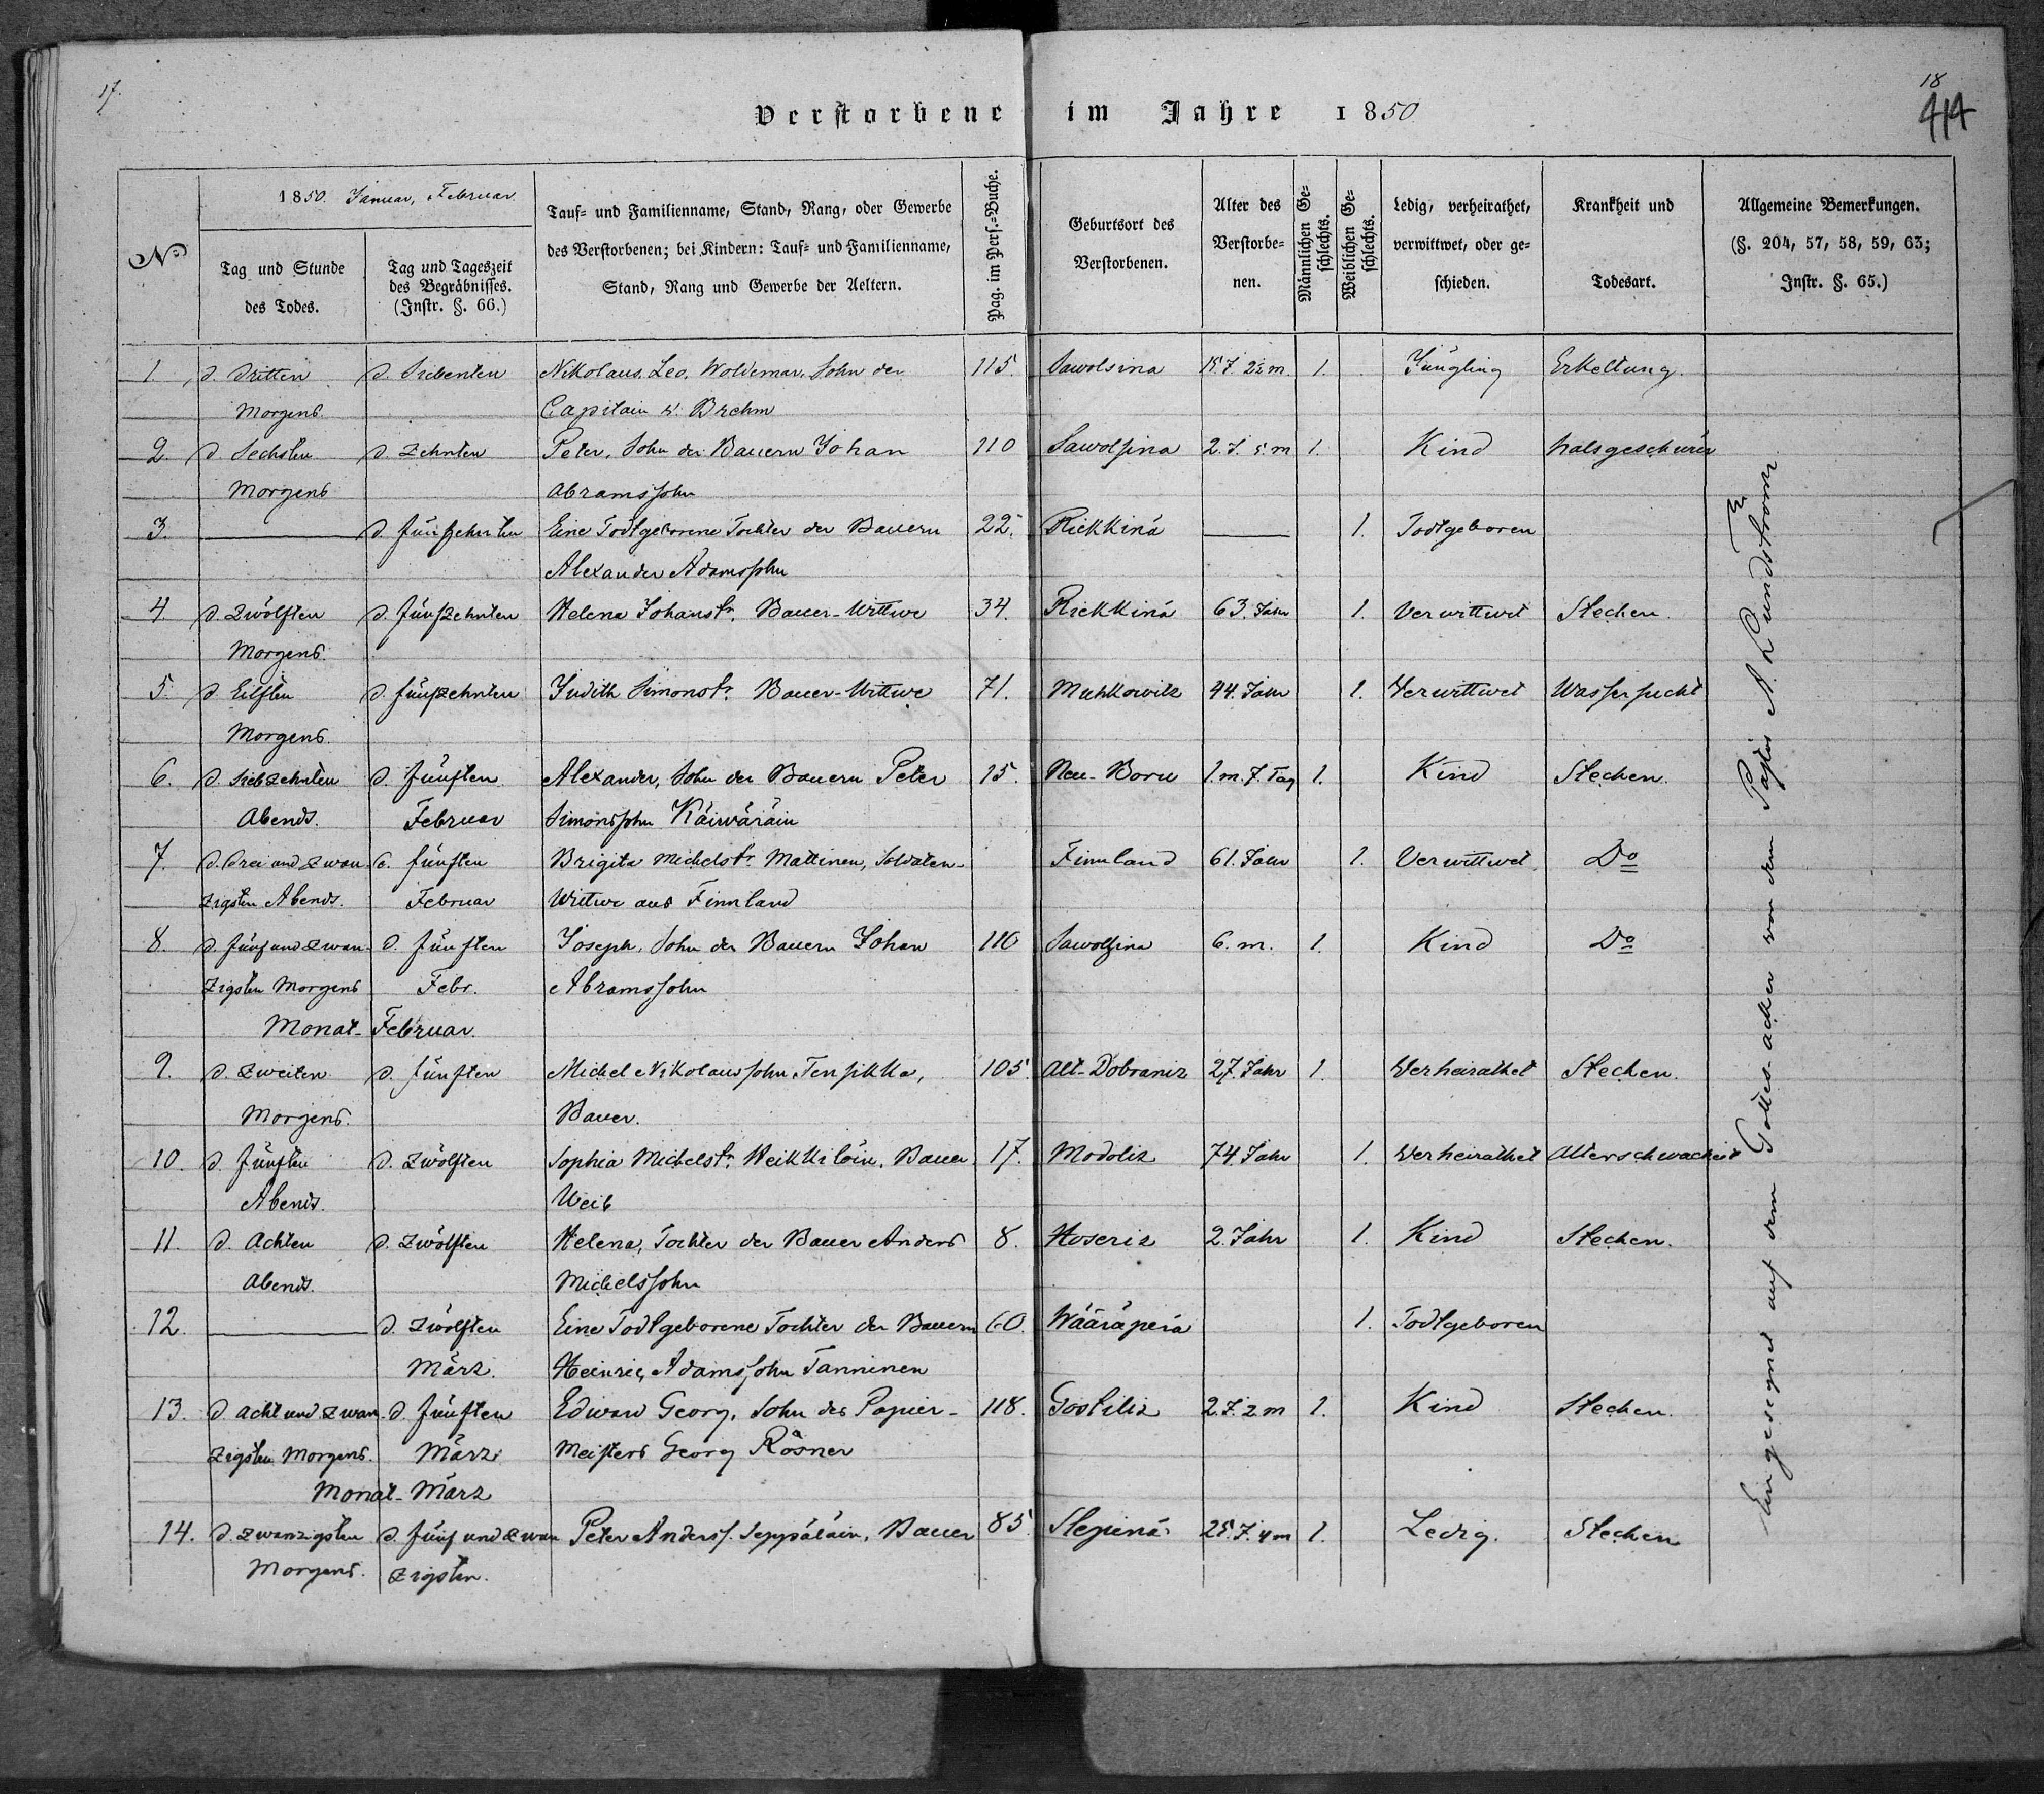 17.
18
414
Verstorbene im Jahre 1850
1850. Januar, Februar.
No.
Tag und Stunde
des Todes.
Tag und Tageszeit
des Begräbnisses.
(Instr. §. 66.)
Tauf- und Familienname, Stand, Rang, oder Gewerbe
des Verstorbenen; bei Kindern: Tauf- und Familienname,
Stand, Rang und Gewerbe der Aeltern.
Pag. im Pers.-Buche.
Geburtsort des
Verstorbenen.
Alter des
Verstorbe-
nen.
Männlichen Ge-
schlechts.
Weiblichen Ge-
schlechts.
Ledig, verheirathet,
verwittwet, oder ge-
schieden.
Krankheit und
Todesart.
Allgemeine Bemerkungen.
(§. 204, 57, 58, 59, 63;
Instr. §. 65.)
1. d. Dritten d. Siebenten Nikolaus. Leo. Woldemar. Sohn des 115. Sawolsina 1. Jüngling Erkeltung.
Morgens. Capitain Brehm
2. d. Sechsten d. Zehnten Peter, Sohn des Bauern Johan 110 Sawolsina 2. J. 5. m 1. Kind halsgeschwür
Morgens Abramssohn
3. d. fünfzehnten Eine Todtgeborene Tochter der Bauern 22. Riekkinä 1. Todtgeboren
Alexander Adamssohn
4. d. Zwölften d. fünfzehnten Helena Johanstr. Bauer-Wittwe 34. Riekkinä 63. Jahr 1. Verwittwet Stechen.
Morgens.
5. d. Eilften d. fünfzehnten Judith Simonstr. Bauer-Wittwe 71. Muhkowitz 44. Jahr 1. Verwittwet Wassersucht
Morgens.
6. d. Siebzehnten d. fünften Alexander, Sohn des Bauern Peter 15. Neu-Boru 1. m. 7. Tag 1. Kind Stechen.
Abends. Februar Simonssohn Käiwäräin
7. d. Drei und zwan- d. fünften Brigita Michelstr. Mattinen, Soldaten- Finnland 61. Jahr 1. Verwittwet Do
zigsten Abends. Februar Wittwe aus Finnland
8. d. fünf und zwan- d. fünften Joseph, Sohn des Bauern Johan 110 Sawolsina 6. m. 1. Kind Do
zigsten Morgens Febr. Abramssohn
Monat-Februar.
9. d. Zweiten d. fünften Michel Nikolaussohn Tensikka, 105. Alt-Dobraniz 27. Jahr 1. Verheirathet Stechen.
Morgens. Bauer.
10. d. fünften d. Zwölften Sophia Michelstr. Heikkiläin. Bauer 17. Modoliz 74. Jahr 1. Verheirathet Alterschwacheit
Abends. Weib
11. d. Achten d. Zwölften Helena, Tochter der Bauer Anders 8. Hoseriz 2. Jahr 1. Kind Stechen.
Abends. Michelssohn
12. d. Zwölften Eine Todtgeborene Tochter der Bauern 60. Wääräperä 1. Todtgeboren
März. Heinric, Adamssohn Tanninen
13. d. acht und zwan d. fünften Edward Georg, Sohn des Papier- 118. Gostiliz 2. J. 2. m 1. Kind Stechen.
zigsten Morgens. März Meisters Georg Rösner
Monat-März
14. d. Zwanzigsten d. fünf und zwan Peter Anderss. Seppäläin, Bauer 85. Slepinä 25. J. 4 m 1. Ledig. Stechen
Morgens. zigsten.
Eingesegnet auf dem Gottes-acker von dem Pastor A. L. Lundstroem